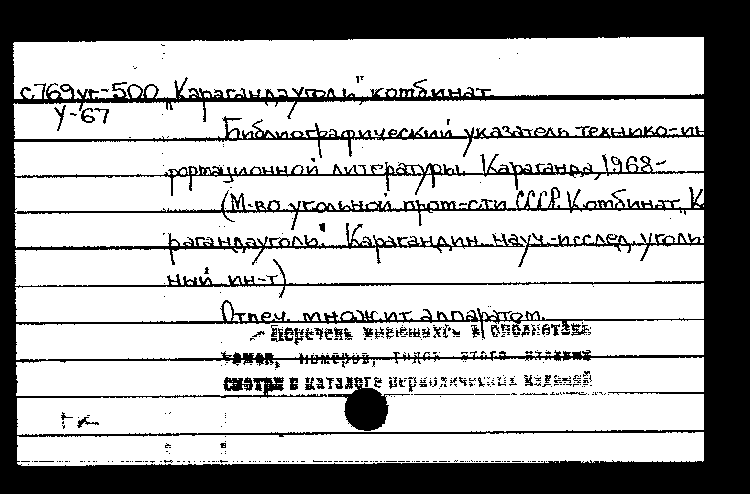 с769уг-500 "Карагандауголь", комбинат.
У-67
Библиографический указатель технико-ин
формационной литературы. Караганда, 1968-
(М-во угольной пром-сти СССР. Комбинат "Ка
рагандауголь". Карагандин. науч.-исслед. уголь
ный ин-т)
Отпеч. множит. аппаратом.
Перечень имеющихся в библиотеке
томов, номеров, годов этого издания
смотри в каталоге периодических изданий